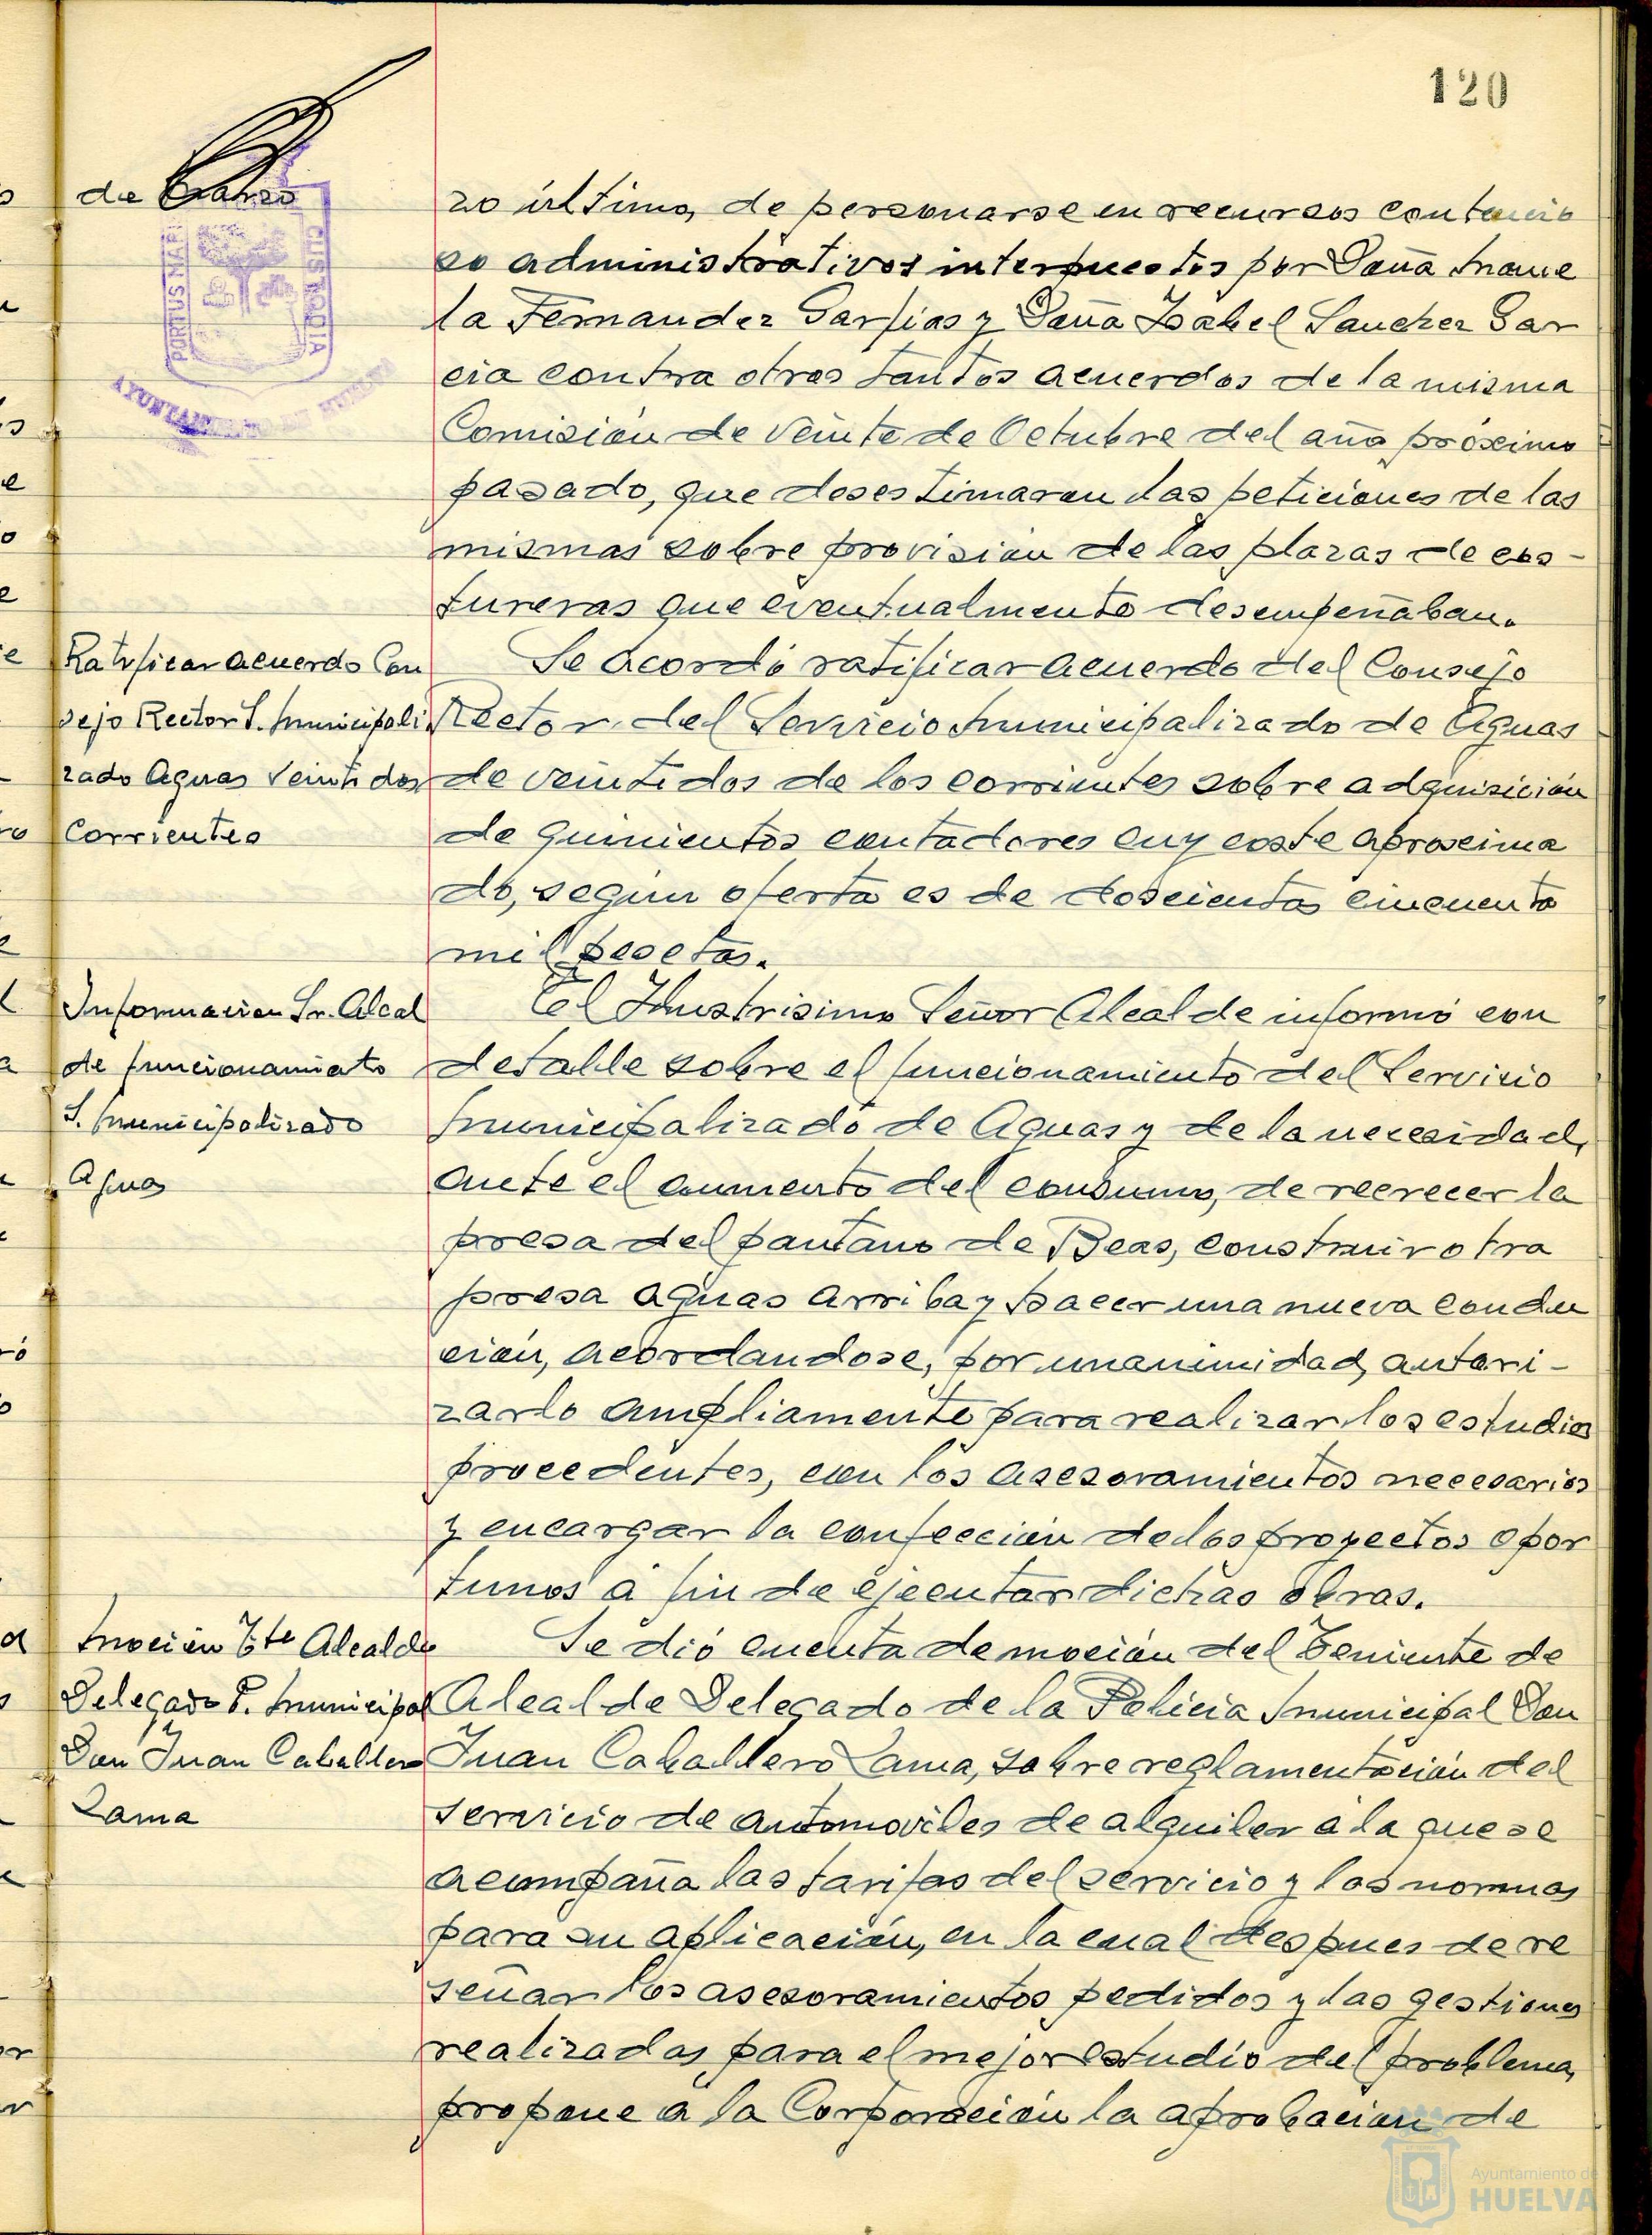 120
de Marzo
PORTUS MARIS
CUSTODIA
AYUNTAMIENTO DE HUELVA
zo último, de personarse en recursos contencio
so administrativos interpuestos por Doña Manue
la Fernandez Garfias y Doña Isabel Sanchez Gar
cia contra otros tantos acuerdos de la misma
Comisión de veinte de Octubre del año próximo
pasado, que desestimaron las peticiones de las
mismas sobre provisión de las plazas de cos-
tureras que eventualmente desempeñaban.
Ratificar acuerdo Con
sejo Rector S. Municipali
zado Aguas veintidos
Corrientes
Se acordó ratificar acuerdo del Consejo
Rector del Servicio Municipalizado de Aguas
de veintidos de los corrientes sobre adquisición
de quinientos contadores cuy coste aproxima
do, según oferta es de doscientas cincuenta
mil pesetas.
Información Sr. Alcal
de funcionamiento
S. Municipalizado
Aguas
El Ilustrisimo Señor Alcalde informó con
detalle sobre el funcionamiento del Servicio
Municipalizado de Aguas y de la necesidad,
ante el aumento del consumo, de recrecer la
presa del pantano de Beas, construir otra
presa aguas arriba y hacer una nueva condu
ción, acordandose, por unanimidad, autori-
zarlo ampliamente para realizar los estudios
procedentes, con los asesoramientos necesarios
y encargar la confección de los proyectos opor
tunos a fin de ejecutar dichas obras.
Moción Tte Alcalde
Delegado P. Municipal
Don Juan Caballero
Lama
Se dió cuenta de moción del Teniente de
Alcalde Delegado de la Policia Municipal Don
Juan Caballero Lama, sobre reglamentación del
servicio de automoviles de alquiler a la que se
acompaña las tarifas del servicio y las normas
para su aplicación, en la cual despues de re
señar los asesoramientos pedidos y las gestiones
realizadas para el mejor estudio del problema,
propone a la Corporación la aprobación de
Ayuntamiento de
HUELVA